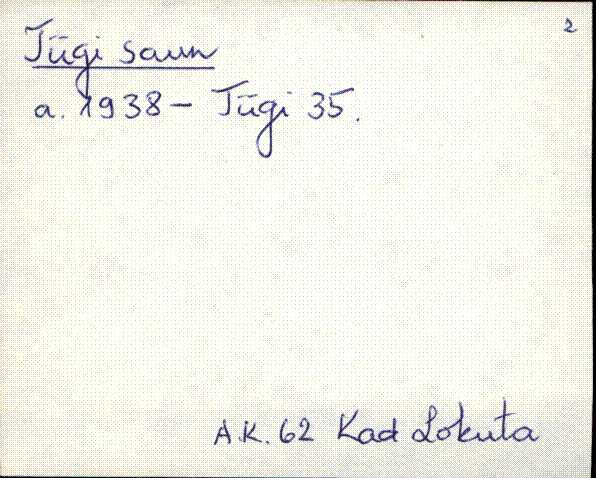 2
Tügi saun
a. 1938 – Tügi 35.
A.K. 62 Kad Lokuta